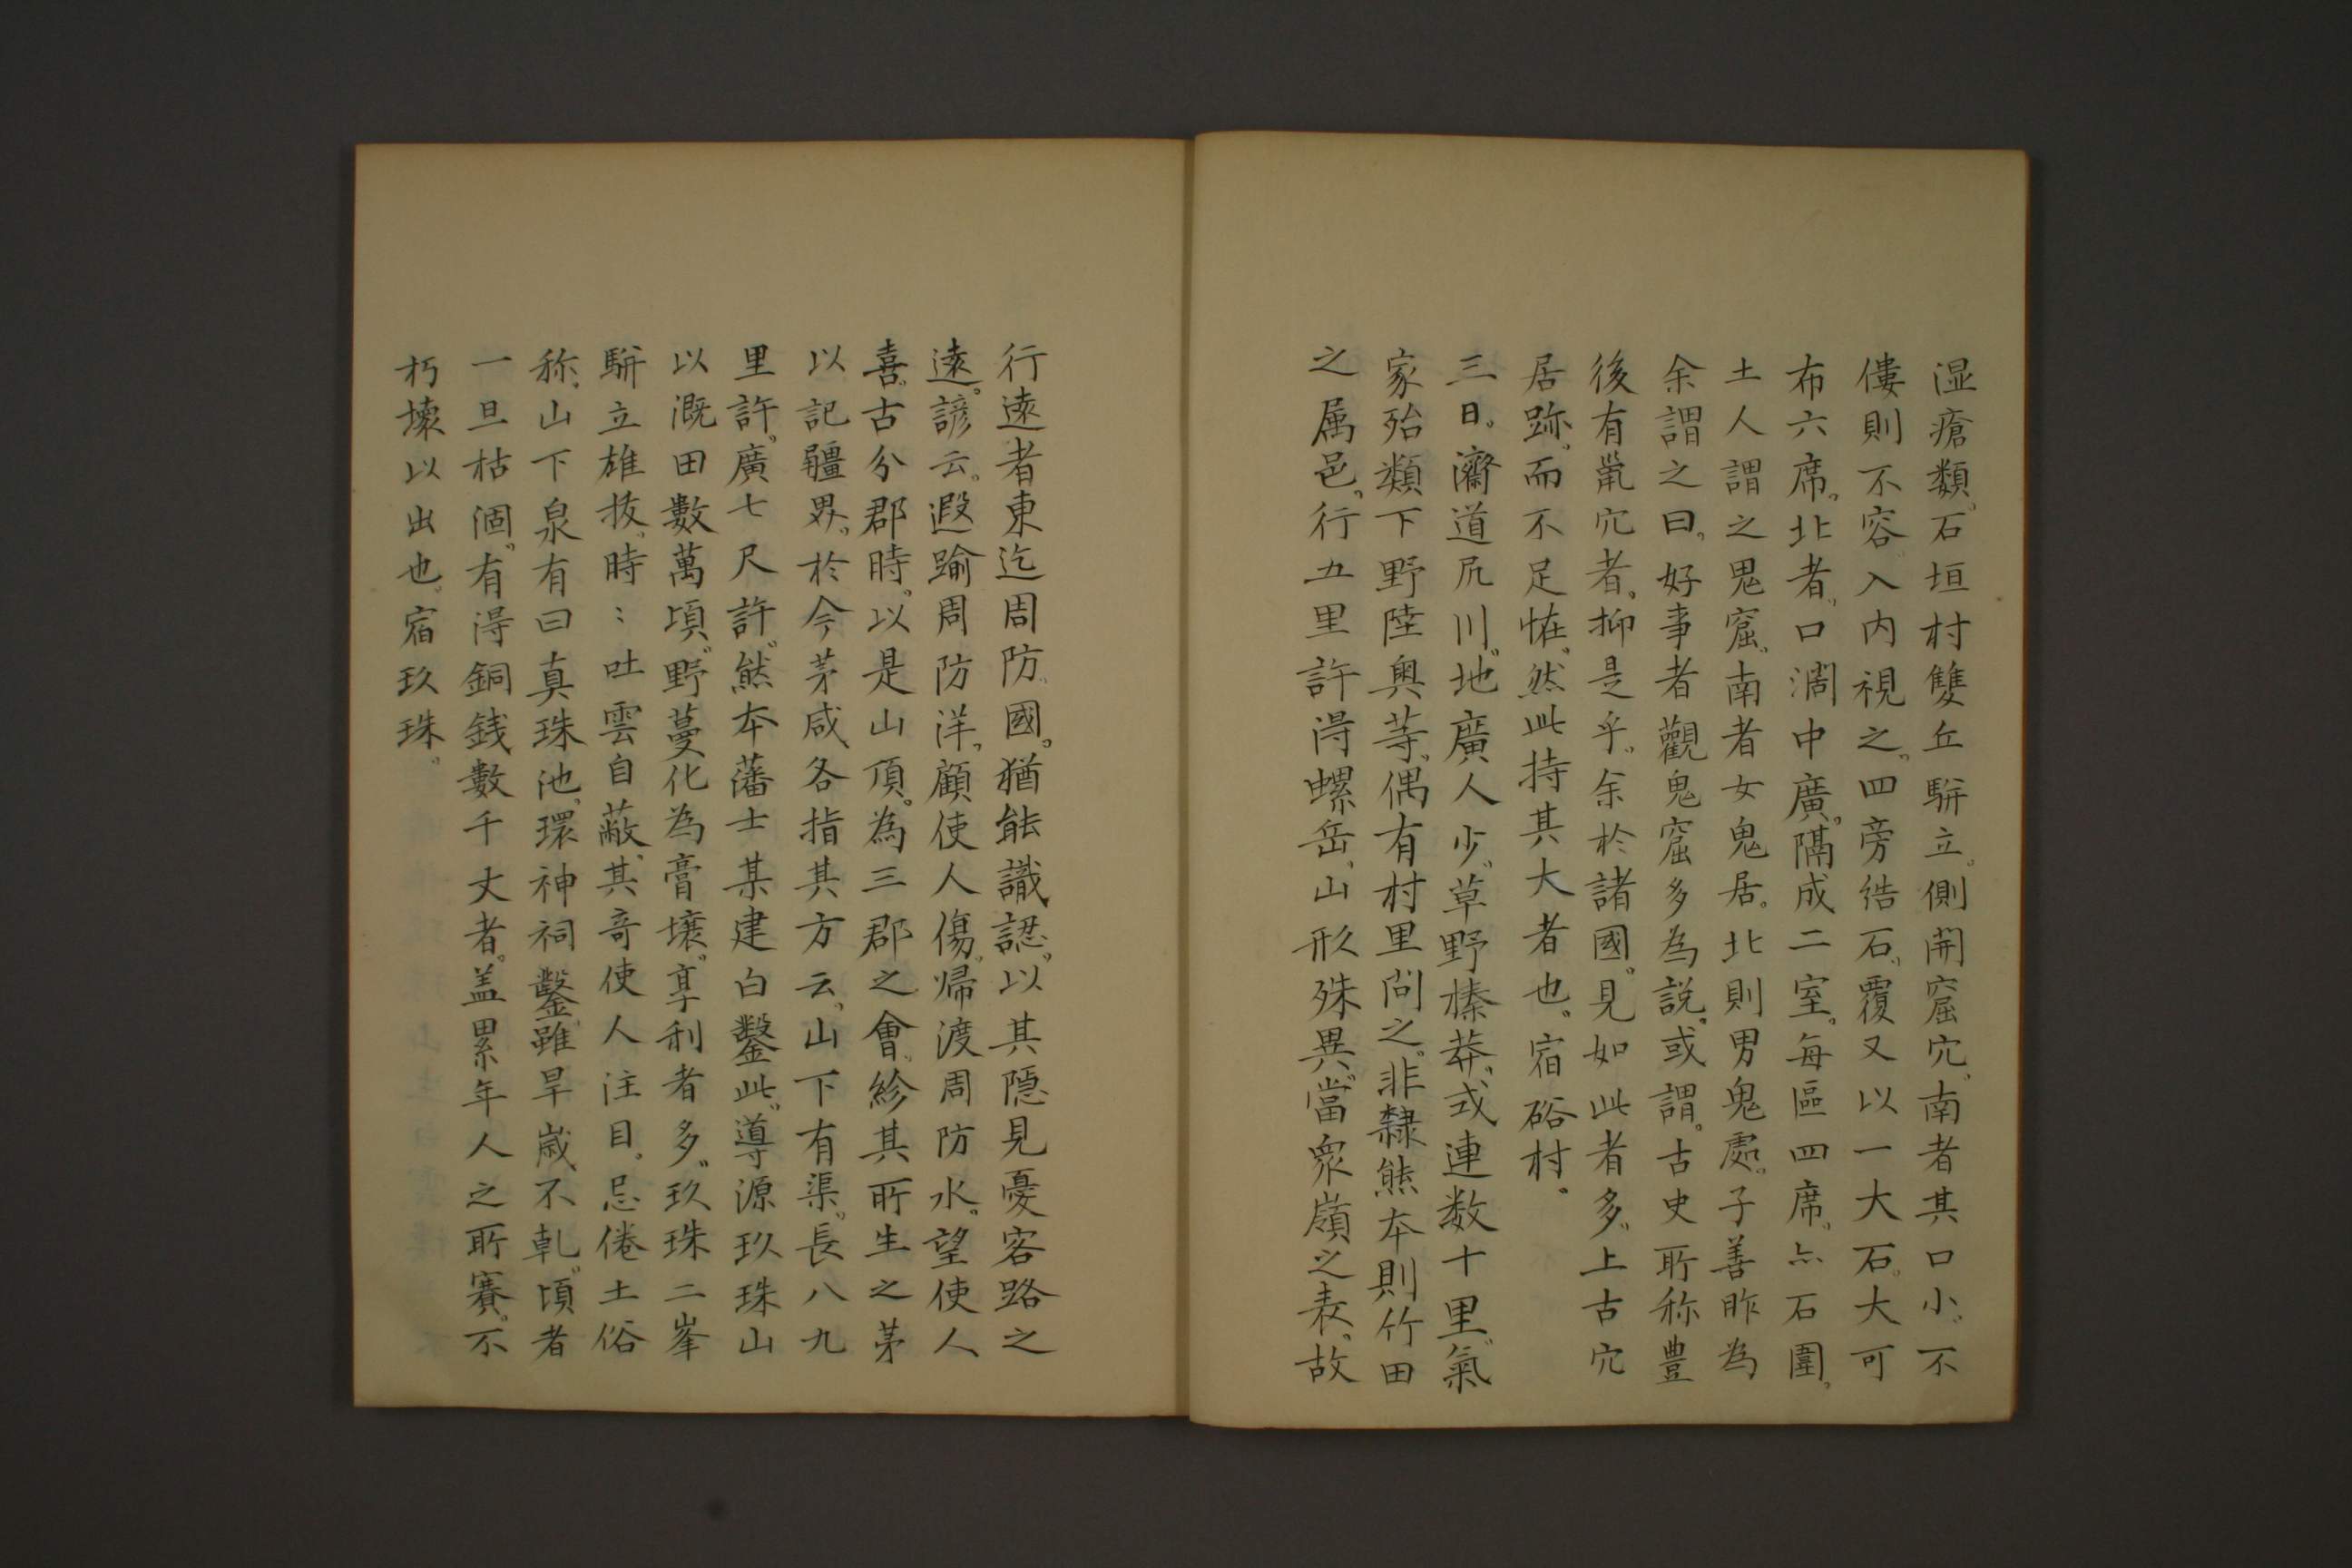 湿瘡類。石垣村雙丘駢立。側開窟穴。南者其口小。不
僂則不容。入内視之。四旁㕸石。覆又以一大石。大可
布六席。北者。口濶中廣。隔成二室。每區四席。亦石圍。
土人謂之鬼窟。南者女鬼居。北則男鬼處。子善昨為
余謂之曰。好事者觀鬼窟多為說。或謂。古史所称豊
後有鼡穴者。抑是乎。余於諸國。見如此者多。上古穴
居跡。而不足恠。然此持其大者也。宿硲村。
三日。濟道尻川。地廣人少。草野榛莽。或連数十里。氣
家殆類下野陸奥等。偶有村里問之。非隸熊本則竹田
之属邑。行五里許淂螺岳。山形殊異。當衆嶺之表。故
行遠者東迄周防國。猶能識認。以其隱見憂客路之
遠。諺云。遐踰周防洋。顧使人傷。帰渡周防水。望使人
喜。古分郡時。以是山頂。為三郡之會。紾其所生之茅
以記疆界。於今茅咸各指其方云。山下有渠。長八九
里許。廣七尺許。熊本藩士某建白鑿此。導源玖珠山
以溉田數萬頃。野蔓化為膏壌。享利者多。玖珠二峯
駢立雄抜。時〻吐雲自蔽。其奇使人注目。忘倦土俗
称。山下泉有曰真珠池。環神祠鑿。雖旱歳不乹。頃者
一旦枯涸。有淂銅銭數千丈者。盖累年人之所賽。不
朽壊以出也。宿玖珠。